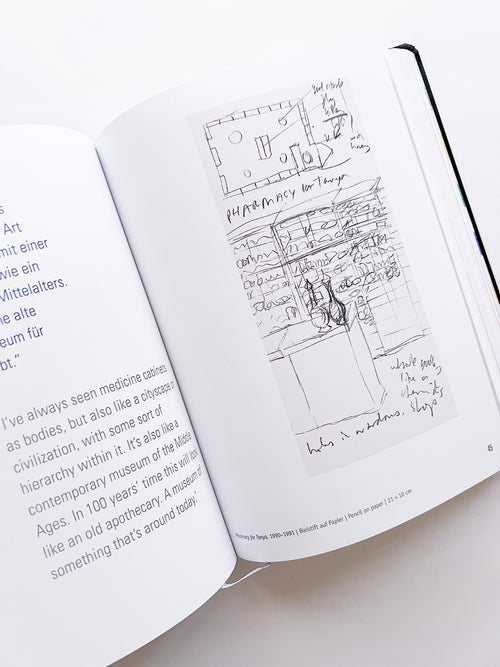 s
Art
mit einer
wie ein
Mittelalters.
ne alte
eum für
bt."
I've always seen medicine cabinets
as bodies, but also like a cityscape or
civilization, with some sort of
hierarchy within it. It's also like a
contemporary museum of the Middle
Ages. In 100 years' time this will look
like an old apothecary. A museum of
something that's around today.'
PHARMACY for Tanya
whole
like a
chemists
shop
holes in windows.
Pharmacy for Tanya, 1990–1991 | Bleistift auf Papier | Pencil on paper | 21 × 10 cm
45